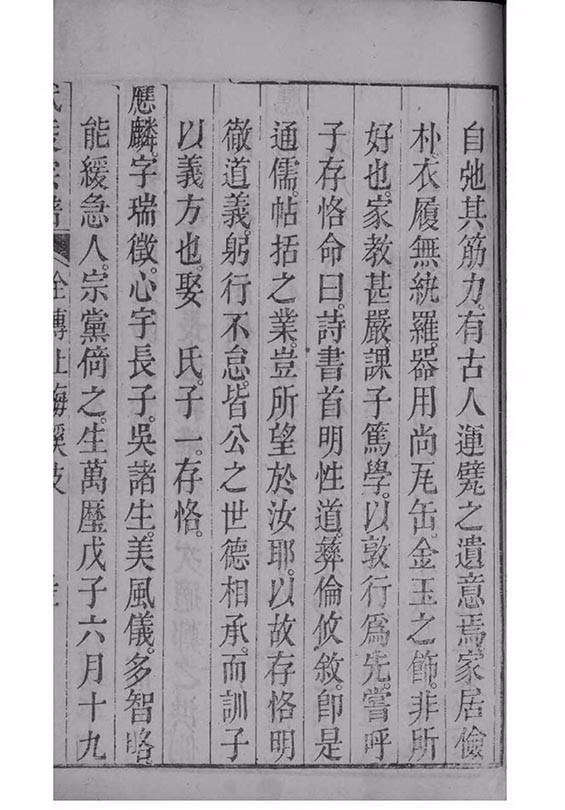 自弛其筋力。有古人運甓之遺意焉。家居儉
朴。衣履無紈羅。器用尚瓦缶。金玉之飾。非所
好也。家教甚嚴。課子篤學。以敦行爲先。嘗呼
子存恪命曰。詩書首明性道。彜倫攸敘。卽是
通儒。帖括之業。豈所望於汝耶。以故存恪明
徹道義。躬行不怠。皆公之世德相承。而訓子
以義方也。娶　氏。子一。存恪。
應麟。字瑞徵。心宇長子。吳諸生。美風儀。多智略
能緩急人。宗黨倚之。生萬曆戊子六月十九